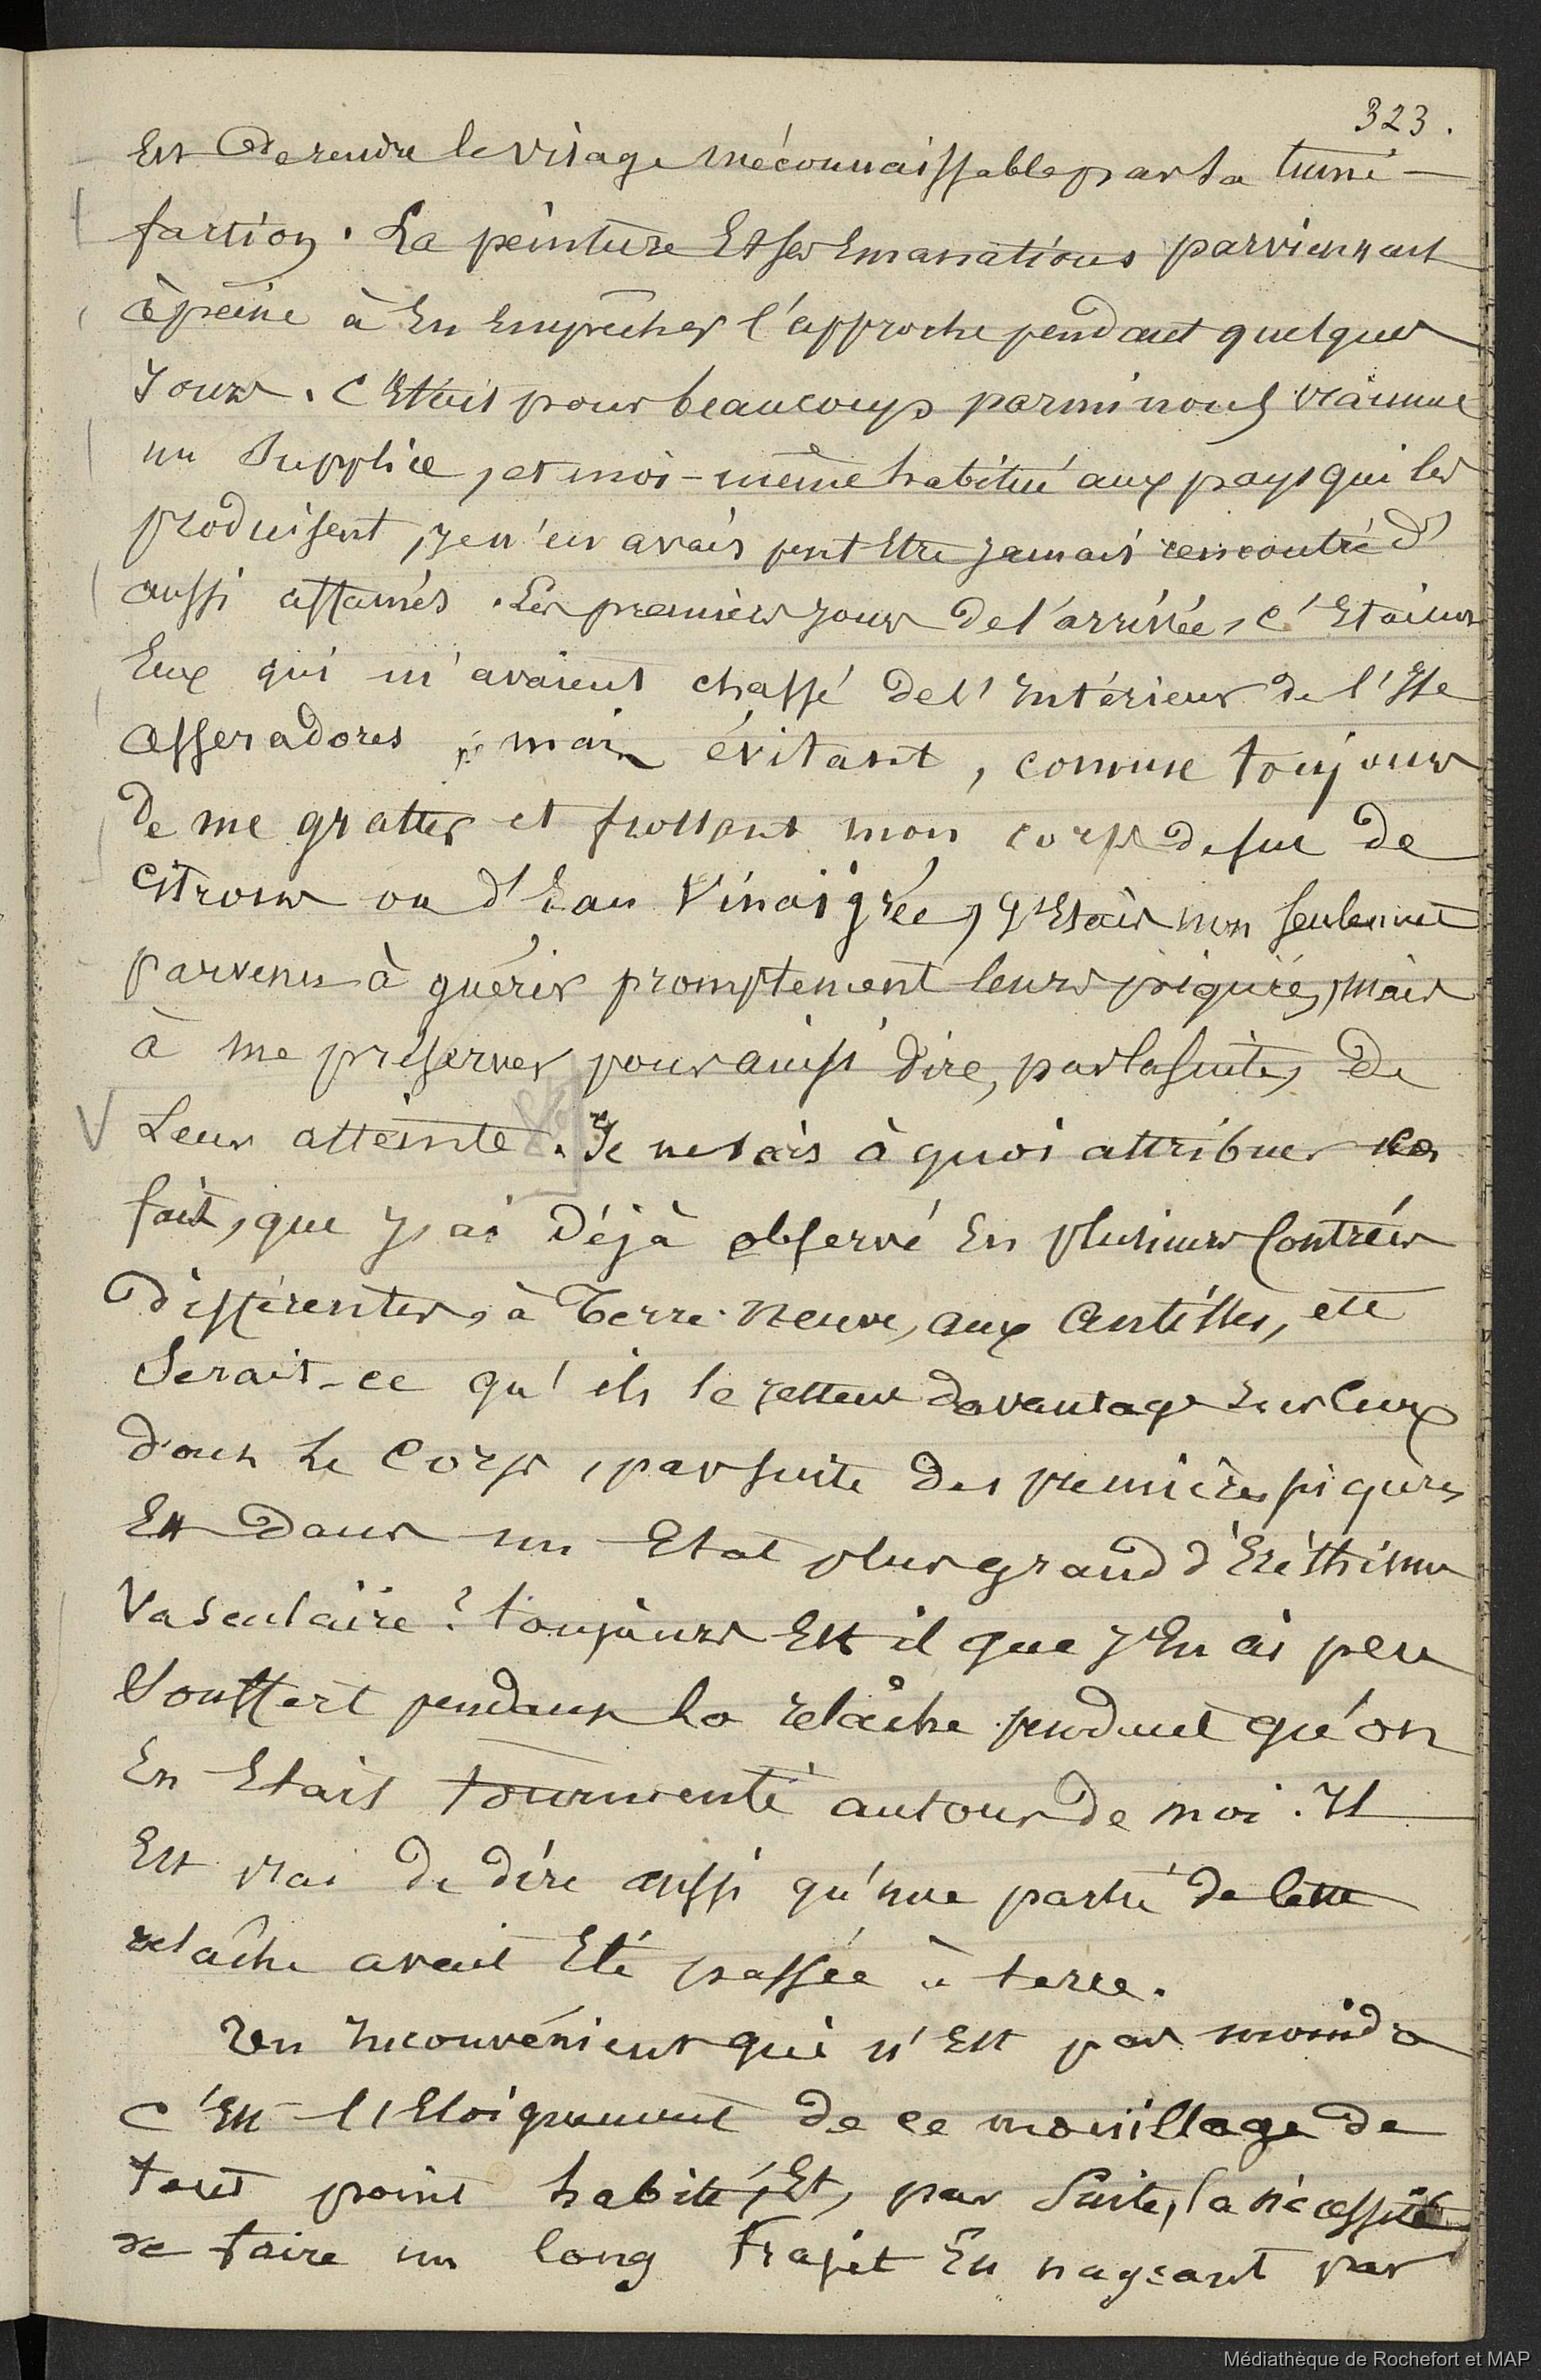 323.
Est de rendre le visage méconnaissable par sa tumé-
faction. La peinture Et ses Emanations parviennent
à peine à En Empêcher l'approche pendant quelques
Jours. C'Etait pour beaucoup parmi nous vraiment
un Supplice, et moi-même habitué aux pays qui les
produisent, je n'en avais peut Etre jamais rencontré d'
aussi affamés. Les premiers jours de l'arrivée, c'Etaient
Eux qui m'avaient chassé de l'Intérieur de l'Isle
Asseradores ; mais évitant, comme toujours
de me gratter et frottant mon corps de suc de
Citrons ou d'Eau Vinaigrée, j'Etais non seulement
parvenu à guérir promptement leurs piqures, mais
à me préserver pour ainsi dire, par la suite, de
Leur atteinte. Je ne sais à quoi attribuer ce
fait, que j'ai Déjà observé En plusieurs Contrées
Différentes, à Terre-Neuve, aux Antilles, etc
Serait-ce qu'ils se jettent davantage sur Ceux
dont le Corps, par suite des premières piqures
Est Dans un Etat plus grand d'Eréthisme
Vasculaire ? toujours Est il que j'En ai peu
Souffert pendant la relâche pendant qu'on
En Etait tourmenté autour de moi. Il
Est vrai de dire aussi qu'une partie de Cette
relâche avait Eté passée à terre.
Un Inconvénient qui n'Est pas moindre
C'Est l'Eloignement de ce mouillage de
tout point habité, Et, par Suite, la nécessité
de faire un long trajet En nageant par
Médiathèque de Rochefort et MAP